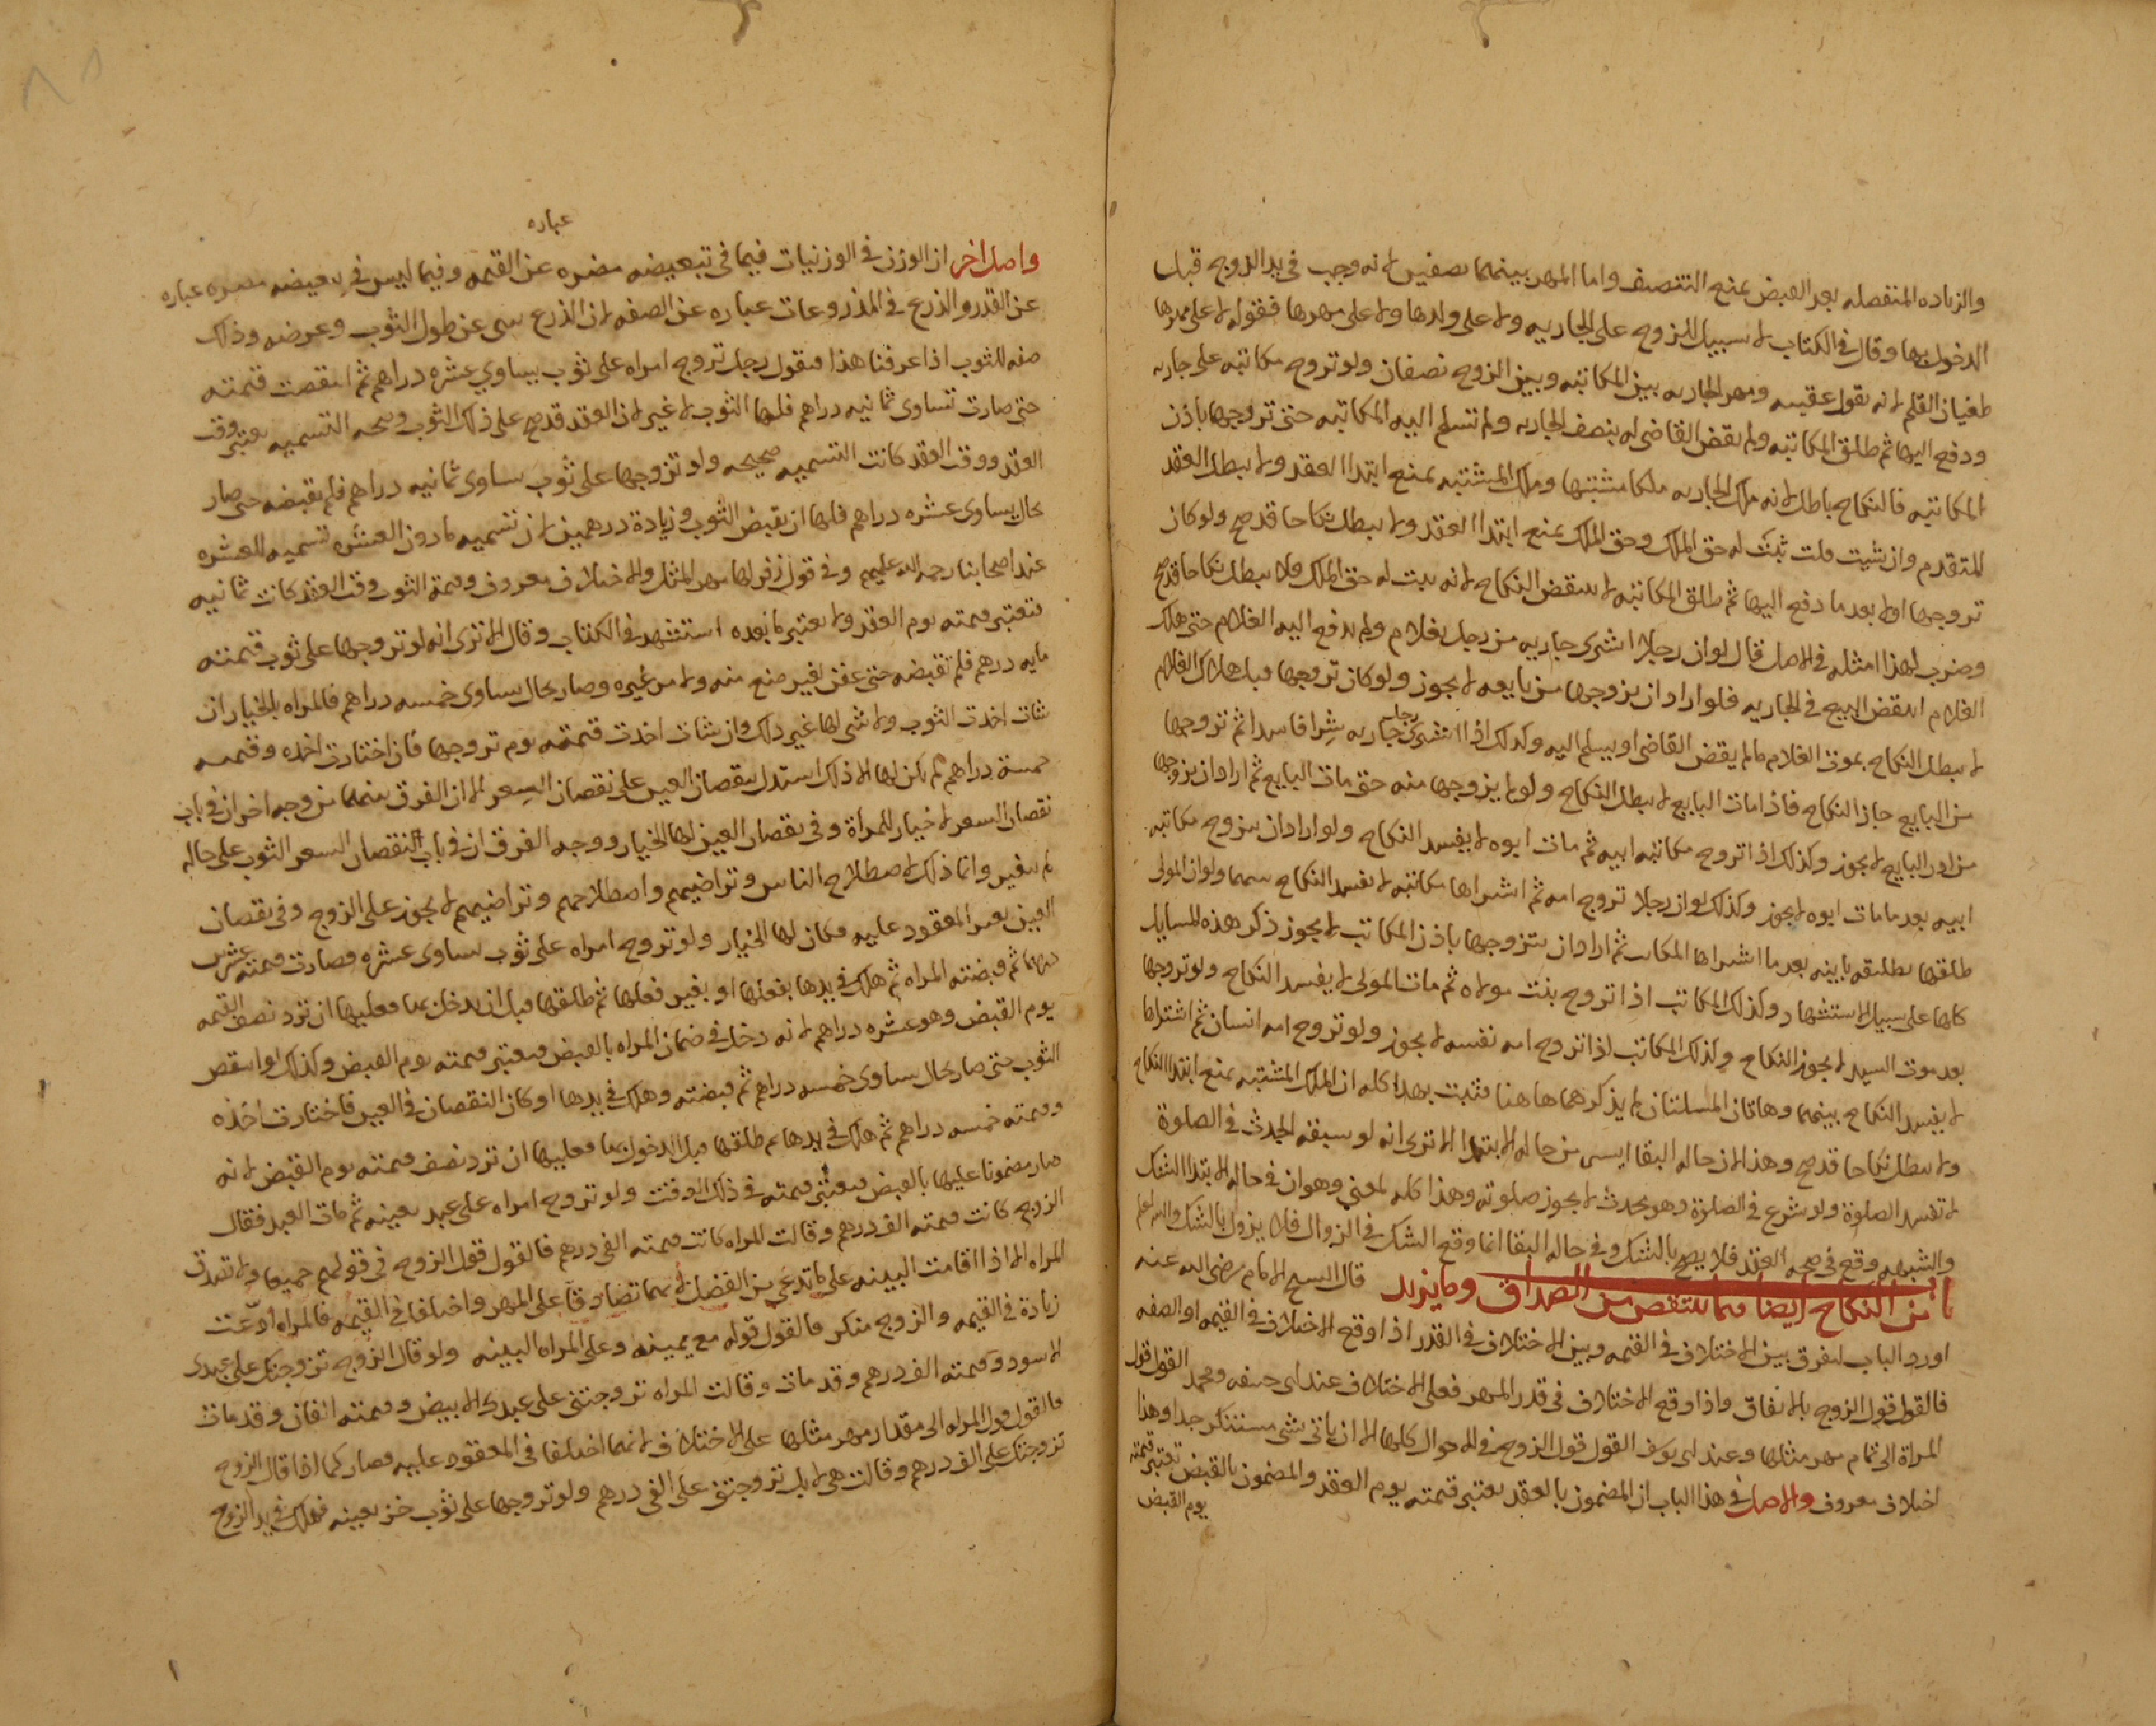 والزياده المنفصله بعد القبض يمنع التنصف واما المهر بينهما نصفين لانه وجب في يد الزوج قبل
الدخول بها وقال في الكتاب لا سبيل للزوج على الجاريه ولا على ولدها ولا على مهرها فقوله لا على مهرها
طغيان القلم لانه يقول عقيبه ومهر الجاريه بين المكاتبه وبين الزوج نصفان ولو تزوج مكاتبه على جاريه
ودفع اليها ثم طلق المكاتبه ولم يقض القاضي له بنصف الجاريه ولم تسلم اليه المكاتبه حتى تزوجها باذن
المكاتبه فالنكاح باطل لانه ملك الجاريه ملكا مشتبها وملك المشتبه يمنع ابتدا العقد ولا يبطل العقد
المتقدم وان شيت قلت ثبت له حق الملك وحق الملك يمنع ابتدا العقد ولا يبطل نكاحا قد صح ولو كان
تزوجها اولا بعد ما دفع اليها ثم طلق المكاتبه لا ينتقض النكاح لانه يثبت له حق الملك فلا يبطل نكاحا قد صح
وضرب لهذا امثله في الاصل قال لو ان رجلا اشترى جاريه من رجل بغلام ولم يدفع اليه الغلام حتى هلك
الغلام انتقض البيع في الجاريه فلو اراد ان يزوجها من بايعه لا يجوز ولو كان تزوجها قبل هلاك الغلام
لا يبطل النكاح بموت الغلام ما لم يقض القاضي او يسلم اليه وكذلك اذا اشترى رجل جاريه شرا فاسدا ثم تزوجها
من البايع جاز النكاح فاذا مات البايع لا يبطل النكاح ولو لم يزوجها منه حتى مات البايع ثم اراد ان يزوجها
من ابن البايع لا يجوز وكذلك اذا تزوج مكاتبه ابيه ثم مات ابوه لا يفسد النكاح ولو اراد ان يتزوج مكاتبه
ابيه بعد ما مات ابوه لا يجوز وكذلك لو ان رجلا تزوج امه ثم اشتراها مكاتبه لا يفسد النكاح بينهما ولو ان المولى
طلقها تطليقه باينه بعد ما اشتراها المكاتب ثم اراد ان يتزوجها باذن المكاتب لا يجوز ذكر هذه المسايل
كلها على سبيل الاستشهاد وكذلك المكاتب اذا تزوج بنت مولاه ثم مات المولى لا يفسد النكاح ولو تزوجها
بعد موت السيد لا يجوز النكاح وكذلك المكاتب اذا تزوج امه نفسه لا يجوز ولو تزوج امه انسان ثم اشتراها
لا يفسد النكاح بينهما وهاتان المسلتان لم يذكرهما هاهنا فثبت بهذا كله ان الملك المشتبه يمنع ابتدا النكاح
ولا يبطل نكاحا قد صح وهذا لان حاله البقا ايسر من حاله الابتدا الا ترى انه لو سبقه الحدث في الصلوة
لا تفسد الصلوة ولو شرع في الصلوة وهو محدث لا يجوز صلوته وهذا كله لمعنى وهو ان في حاله الابتدا الشك
والشبهه وقع في صحه العقد فلا يصح بالشك وفي حاله البقا انما وقع الشك في الزوال فلا يزول بالشك والله اعلم
باب من النكاح ايضا مما ينتقص من الصداق وما يزيد قال الشيخ الامام رضي الله عنه
اورد الباب ليفرق بين الاختلاف في القيمه وبين الاختلاف في القدر اذا وقع الاختلاف في القيمه او الصفه
فالقول قول الزوج بالاتفاق واذا وقع الاختلاف في قدر المهر فعلى الاختلاف عند ابي حنيفه ومحمد القول قول
المراة الى تمام مهر مثلها وعند ابي يوسف القول قول الزوج في الاحوال كلها الا ان ياتي بشي مستنكر جدا وهذا
اختلاف معروف والاصل في هذا الباب ان المضمون بالعقد يعتبر قيمته يوم العقد والمضمون بالقبض تعتبر قيمته
يوم القبض
عباره
واصل اخر ان الوزن في الوزنيات فيما في تبعيضه مضره عن القيمه وفيما ليس في تبعيضه مضره عباره
عن القدر والذرع في المذروعات عباره عن الصفه لان الذرع ينبي عن طول الثوب وعرضه وذلك
صفه للثوب اذا عرفنا هذا فنقول رجل تزوج امراه على ثوب يساوي عشره دراهم ثم انتقصت قيمته
حتى صارت تساوى ثمانيه دراهم فلها الثوب لا غير لان العقد قد صح على ذلك الثوب وصحه التسميه يعتبر وقت
العقد ووقت العقد كانت التسميه صحيحه ولو تزوجها على ثوب يساوى ثمانيه دراهم فلم يقبضه حتى صار
بحال يساوى عشره دراهم فلها ان يقبض الثوب وزيادة درهمين لان تسميه ما دون العشره تسميه للعشره
عند اصحابنا رحمه الله عليهم وفي قول زفر لها مهر المثل والاختلاف معروف وقيمة الثوب وقت العقد كانت ثمانيه
فتعتبر قيمته يوم العقد ولا يعتبر ما بعده استشهد في الكتاب وقال الا ترى انه لو تزوجها على ثوب قيمته
مايه درهم فلم تقبضه حتى عفن لغير صنع منه ولا من غيره وصار بحال يساوى خمسه دراهم فالمراه بالخيار ان
شات اخذت الثوب ولا شي لها غير ذلك وان شات اخذت قيمته يوم تزوجها فان اختارت اخذه وقيمته
خمسة دراهم لم يكن لها الا ذلك استدل بنقصان العين على نقصان السعر الا ان الفرق بينهما من وجه اخر ان في باب
نقصان السعر لا خيار للمراة وفي نقصان العين لها الخيار ووجه الفرق ان في باب النقصان السعر الثوب على حاله
لم يتغير وانما ذلك لاصطلاح الناس وتراضيهم واصطلاحهم وتراضيهم لا يجوز على الزوج وفي نقصان
العين تغير المعقود عليه فكان لها الخيار ولو تزوج امراه على ثوب يساوى عشره فصارت قيمته عشرين
درهما ثم قبضته المراه ثم هلك في يدها بفعلها او بغير فعلها ثم طلقها قبل ان يدخل بها فعليها ان ترد نصف القيمه
يوم القبض وهو عشره دراهم لانه دخل في ضمان المراه بالقبض فيعتبر قيمته يوم القبض وكذلك لو انتقص
الثوب حتى صار بحال يساوى خمسه دراهم ثم قبضته وهلك في يدها او كان النقصان في العين فاختارت اخذه
وقيمته خمسه دراهم ثم هلك في يدها ثم طلقها قبل الدخول بها فعليها ان ترد نصف قيمته يوم القبض لانه
صار مضمونا عليها بالقبض فيعتبر قيمته في ذلك الوقت ولو تزوج امراه على عبد بعينه ثم مات العبد فقال
الزوج كانت قيمته الف درهم وقالت المراه كانت قيمته الفي درهم فالقول قول الزوج في قولهم جميعا ولا تصدق
المراه الا اذا اقامت البينه على ما تدعي من الفضل لانهما تصادقا على المهر واختلفا في القيمه فالمراه ادعت
زيادة في القيمه والزوج منكر فالقول قوله مع يمينه وعلى المراه البينه ولو قال الزوج تزوجتك على عبدى
الاسود وقيمته الف درهم وقد مات وقالت المراه تزوجتني على عبدك الابيض وقيمته الفان وقد مات
فالقول قول المراه الى مقدار مهر مثلها على الاختلاف لانهما اختلفا في المعقود عليه فصار كما اذا قال الزوج
تزوجتك على الف درهم وقالت هي لا بل تزوجتني على الفي درهم ولو تزوجها على ثوب خز بعينه فهلك في يد الزوج